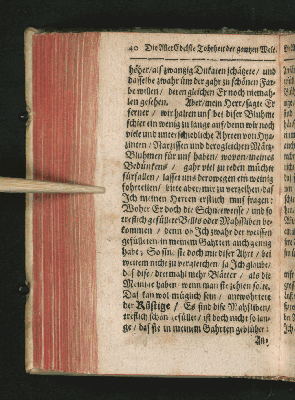 40 Die Aller Edelste Tohrheit der gantzen Welt.
höher/ als zwantzig Dukaten schätzete/ und
dasselbe zwahr üm der gahr zu schönen Far-
be willen/ deren gleichen Er noch niemah-
len gesehen. Aber/ mein Herr/ sagte Er
ferner/ wir halten uns bei diser Bluhme
schier ein wenig zu lange auf/ denn wir noch
viele und unterschiedliche Ahrten von Hya-
zinten/ Narzissen und derogleichen Märtz-
Bluhmen für uns haben/ wovon/ meines
Bedünkens/ gahr viel zu reden müchte
fürfallen/ lasset uns derowegen ein wenig
fohrteilen/ bitte aber/ mir zu verzeihen/ daß
Ich meinen Herren erstlich muß fragen:
Woher Er doch die Schneeweisse/ und so
trefflich gefüllete Bellis oder Mahslüben be-
kommen/ denn ob Ich zwahr der weissen
gefülleten in meinem Gahrten auch genug
habe; So sin sie doch mit diser Ahrt/ bei
weitem nicht zu vergleichen/ ja Ich glaube/
daß dise/ dreimahl mehr Blätter/ als die
Meinige haben/ wenn man sie zehlen solte.
Daß kan wol müglich sein/ antwohrtete
der Rüstige/ Es sind dise Mahslüben/
trefflich schön gefüllet/ ist doch nicht so lan-
ge/ daß sie in meinem Gahrten geblühet: